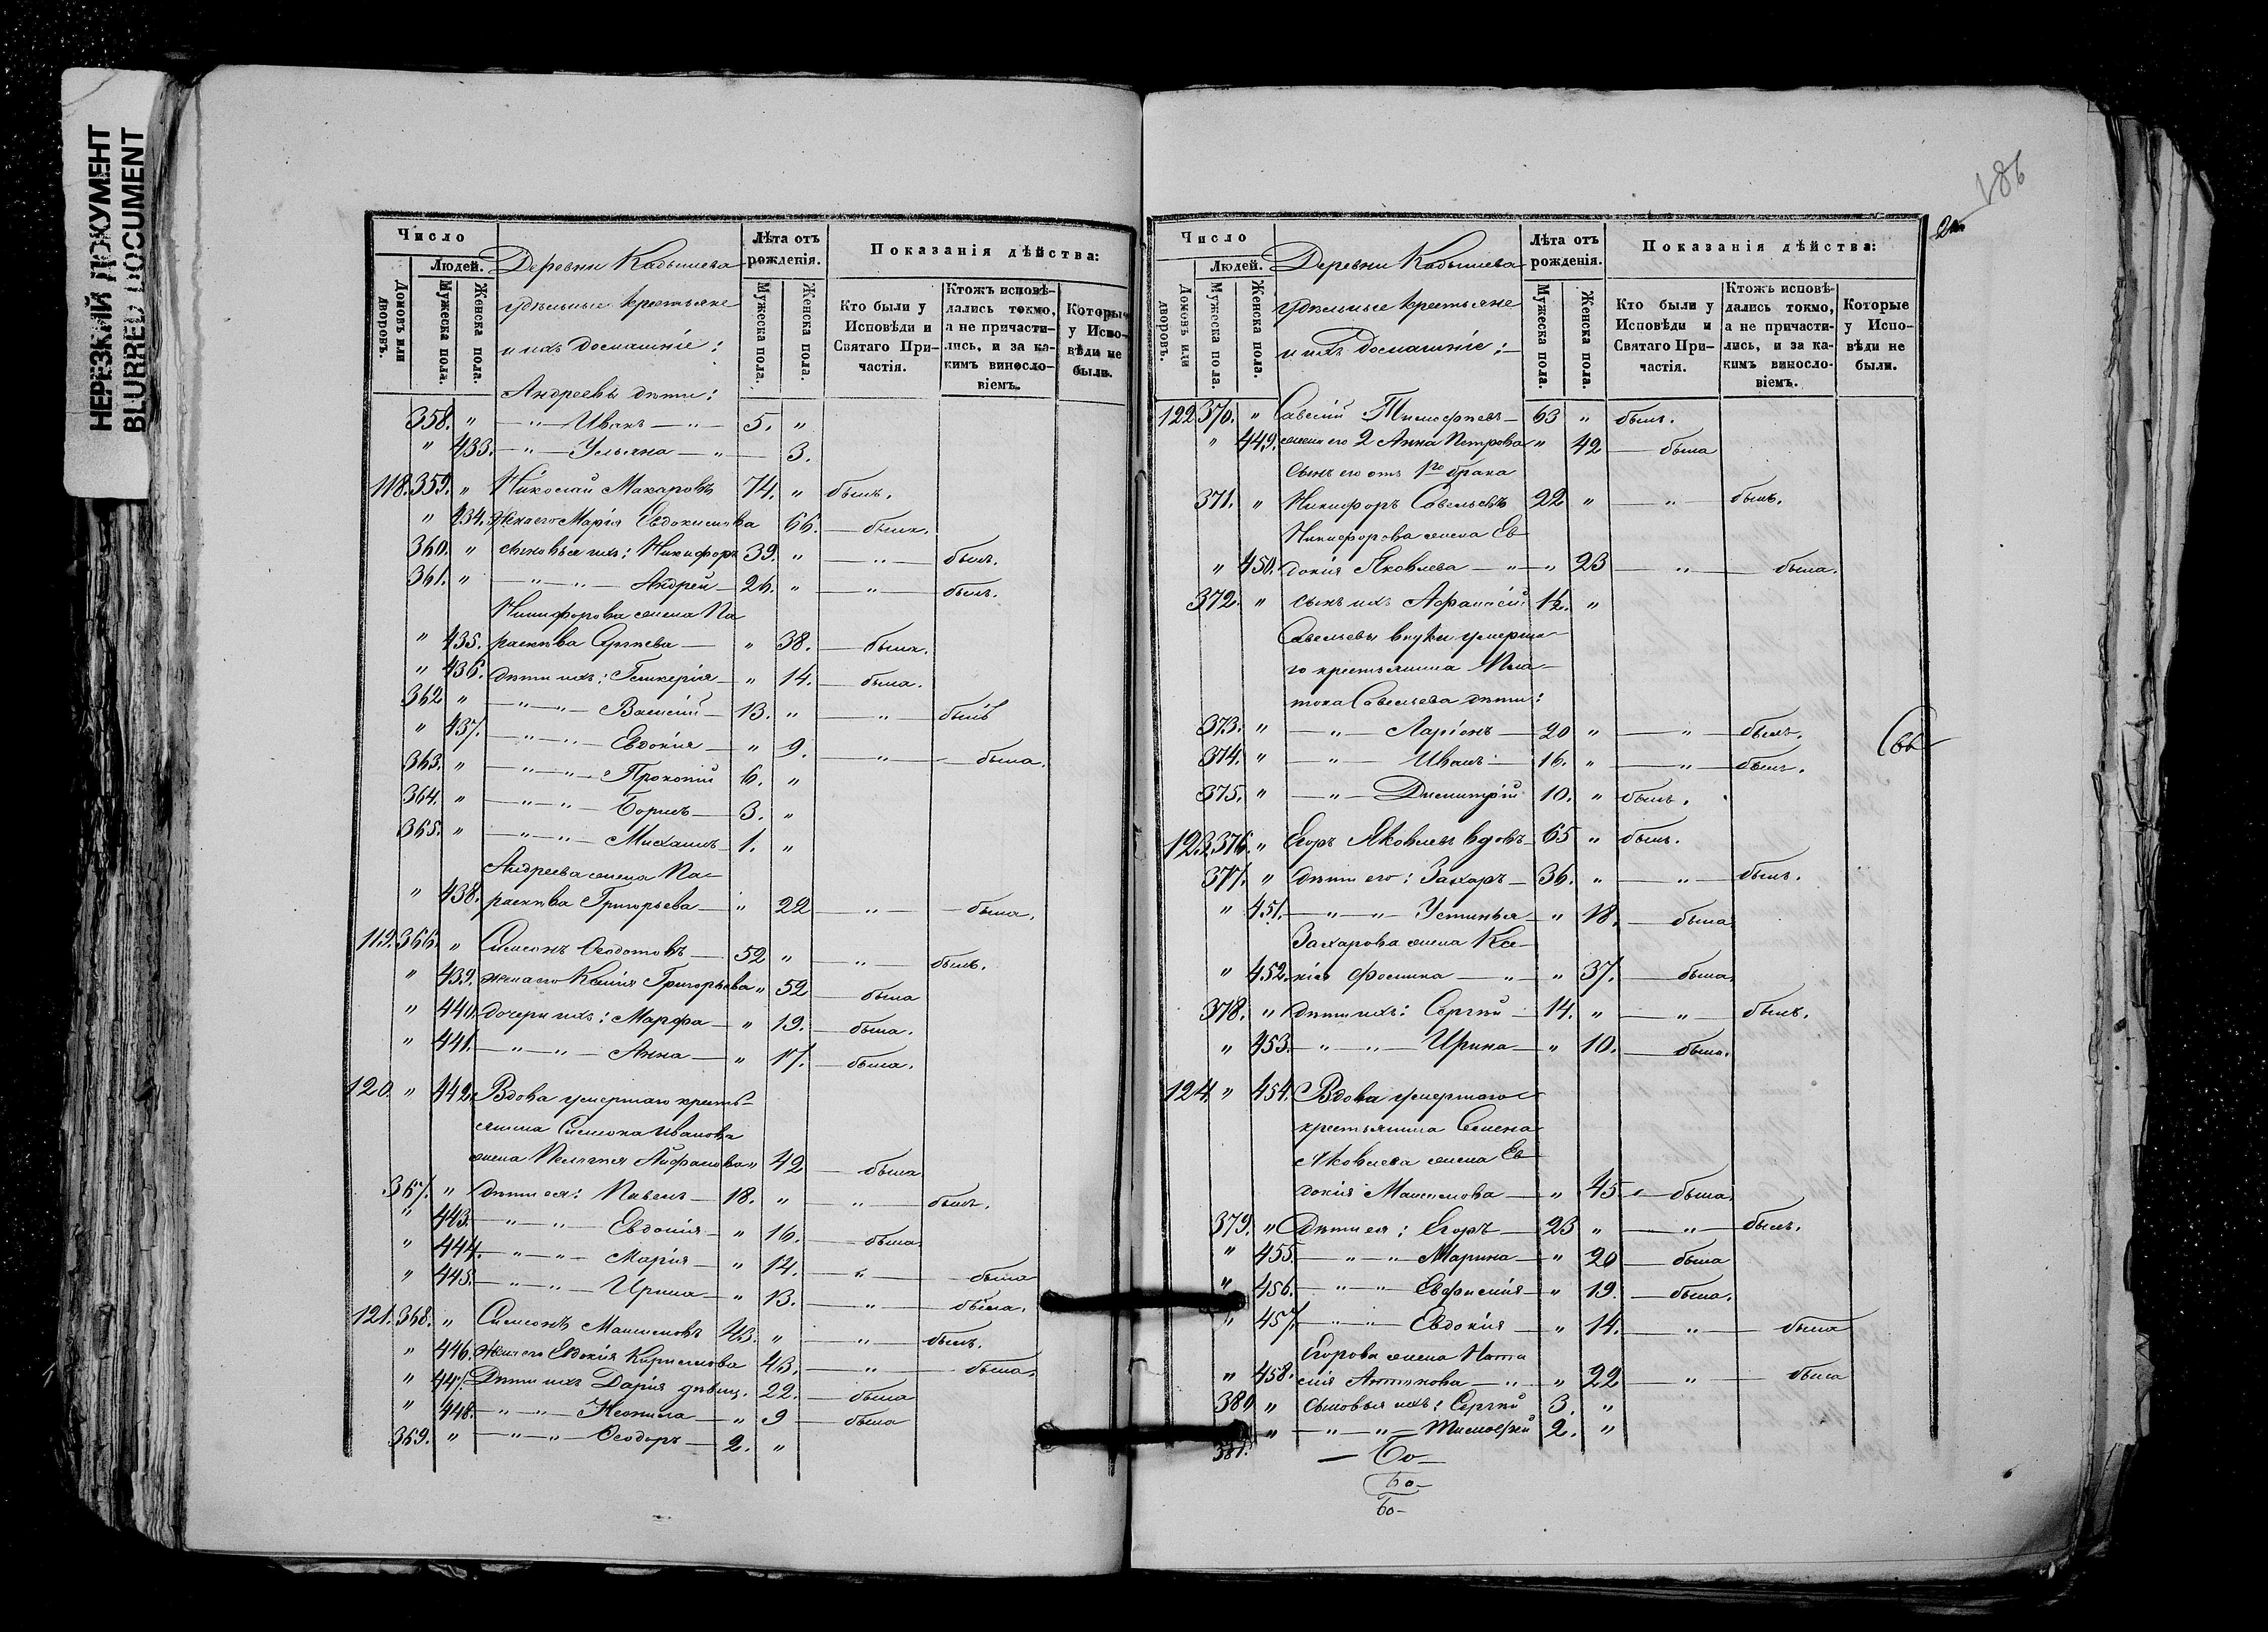 НЕРЕЗКИЙ ДОКУМЕНТ
BLURRED DOCUMENT
Число
Людей.
Домовъ или дворовъ.
Мужеска пола.
Женска пола.
Деревни Кабышева
удѣльные крестьяне
и ихъ домашніе:
Лѣта отъ рожденія.
Мужеска пола.
Женска пола.
Показанія дѣйства:
Кто были у Исповѣди и Святаго При-частія.
Ктожъ исповѣ-дались токмо, а не причасти-лись, и за ка-кимъ винесло-віемъ.
Которые у Испо-вѣди не были.
Андреевы дѣти:
358. " — " — Иванъ — " — 5. "
" 433. — " — Ульяна — " — 3.
118. 359. " Николай Макаровъ 74. " былъ.
" 434. Жена его Марія Евдокимова 66. — была.
360. " сыновья ихъ: Никифоръ 39. " — " — былъ.
361. " — " — " — Андрей — 26. " — " — былъ.
Никифорова жена Па
" 435. раскева Сергѣева — " 38. — была.
" 436. дѣти ихъ: Гликерія — " 14. — была.
362 " — " — " — Василій — 13. " — " — былъ
" 437. — " — " — Евдокія — " 9. — " — была.
363. " — " — " — Прокопій 6. "
364. " — " — " — Борисъ — 3. "
365. " — " — " — Михаилъ 1. "
Андреева жена Па-
" 438. раскева Григорьева — " 22 — " — была.
119. 366. " Симеонъ Ѳеодотовъ — 52 " — " — былъ.
" 439. жена его Ксенія Григорьева " 52 — была
" 440. дочери ихъ: Марфа — " 19. — была.
" 441. — " — " — Анна — " 17. — была.
120. " 442. Вдова умершаго кресть-
янина Симеона Иванова
жена Пелагея " 42 — была
367. " дѣти ея: Павелъ — 18. " — " — былъ.
" 443. — " — " — Евдокія — " 16. — была.
" 444. — " — " — Марія — " 14. — " — была
" 445. — " — " — Ирина — " 13. — " — была.
121. 368. " Симеонъ Максимовъ 43. " — " — былъ.
" 446. жена его Евдокія Кириллова 43. — " — была.
" 447. Дѣти ихъ Дарія дѣвиц. 22. — была
" 448. — " — " — Неонила — " 9 — была
369. " — " — " — Ѳеодоръ — 2. "
186
Число
Людей.
Домовъ или дворовъ.
Мужеска пола.
Женска пола.
Деревни Кабышева
удѣльные крестьяне
и ихъ домашніе:
Лѣта отъ рожденія.
Мужеска пола.
Женска пола.
Показанія дѣйства:
Кто были у Исповѣди и Святаго При-частія.
Ктожъ исповѣ-дались токмо, а не причасти-лись, и за ка-кимъ винесло-віемъ.
Которые у Испо-вѣди не были.
122 370. " Савелій Тимофеевъ — 63 " былъ.
" 449. жена его 2 Анна Петрова " 42 — была
Сынъ его отъ 1го брака
371. " Никифоръ Савельевъ 22 " — " — былъ.
Никифорова жена Ев
" 450. докія Яковлева — " — " 23 — " — была.
372. " сынъ ихъ Афанасій 1½. "
Савельевы внуки умерша-
го крестьянина Пла-
тона Савельева дѣти:
373. " — " — Ларіонъ — 20 " — " — былъ.
374. " — " — Иванъ — 16. " — " — былъ.
375. " — " — Димитрій 10. " былъ.
123. 376. " Егоръ Яковлевъ вдовъ — 65 " былъ.
377. " дѣти его: Захаръ — 36. " — " — былъ.
" 451. — " — " — Устинья " 18. — была
Захарова жена Ксе-
" 452. нія Фомина — " — " 37. — была
378. " дѣти ихъ: Сергѣй — 14. " — " — былъ.
" 453. — " — " — Ирина — " 10. — была.
124. " 454. Вдова умершаго
крестьянина Семена
Яковлева жена Ев
докія Максимова — " 45 — была.
379. " Дѣти ея: Егоръ — 23 " — " — былъ.
" 455. — " — " — Марина — " 20 — была
" 456. — " — " — Евфимія — " 19. — была.
" 457. — " — " — Евдокія — " 14. — " — была
Егорова жена Ната
" 458. лія Антонова — " — " 22 — " — была
380 " Сыновья ихъ: Сергѣй 3. "
381. " — " — " — Тимофей 2. "
— Бо —
Бо —
Бо —